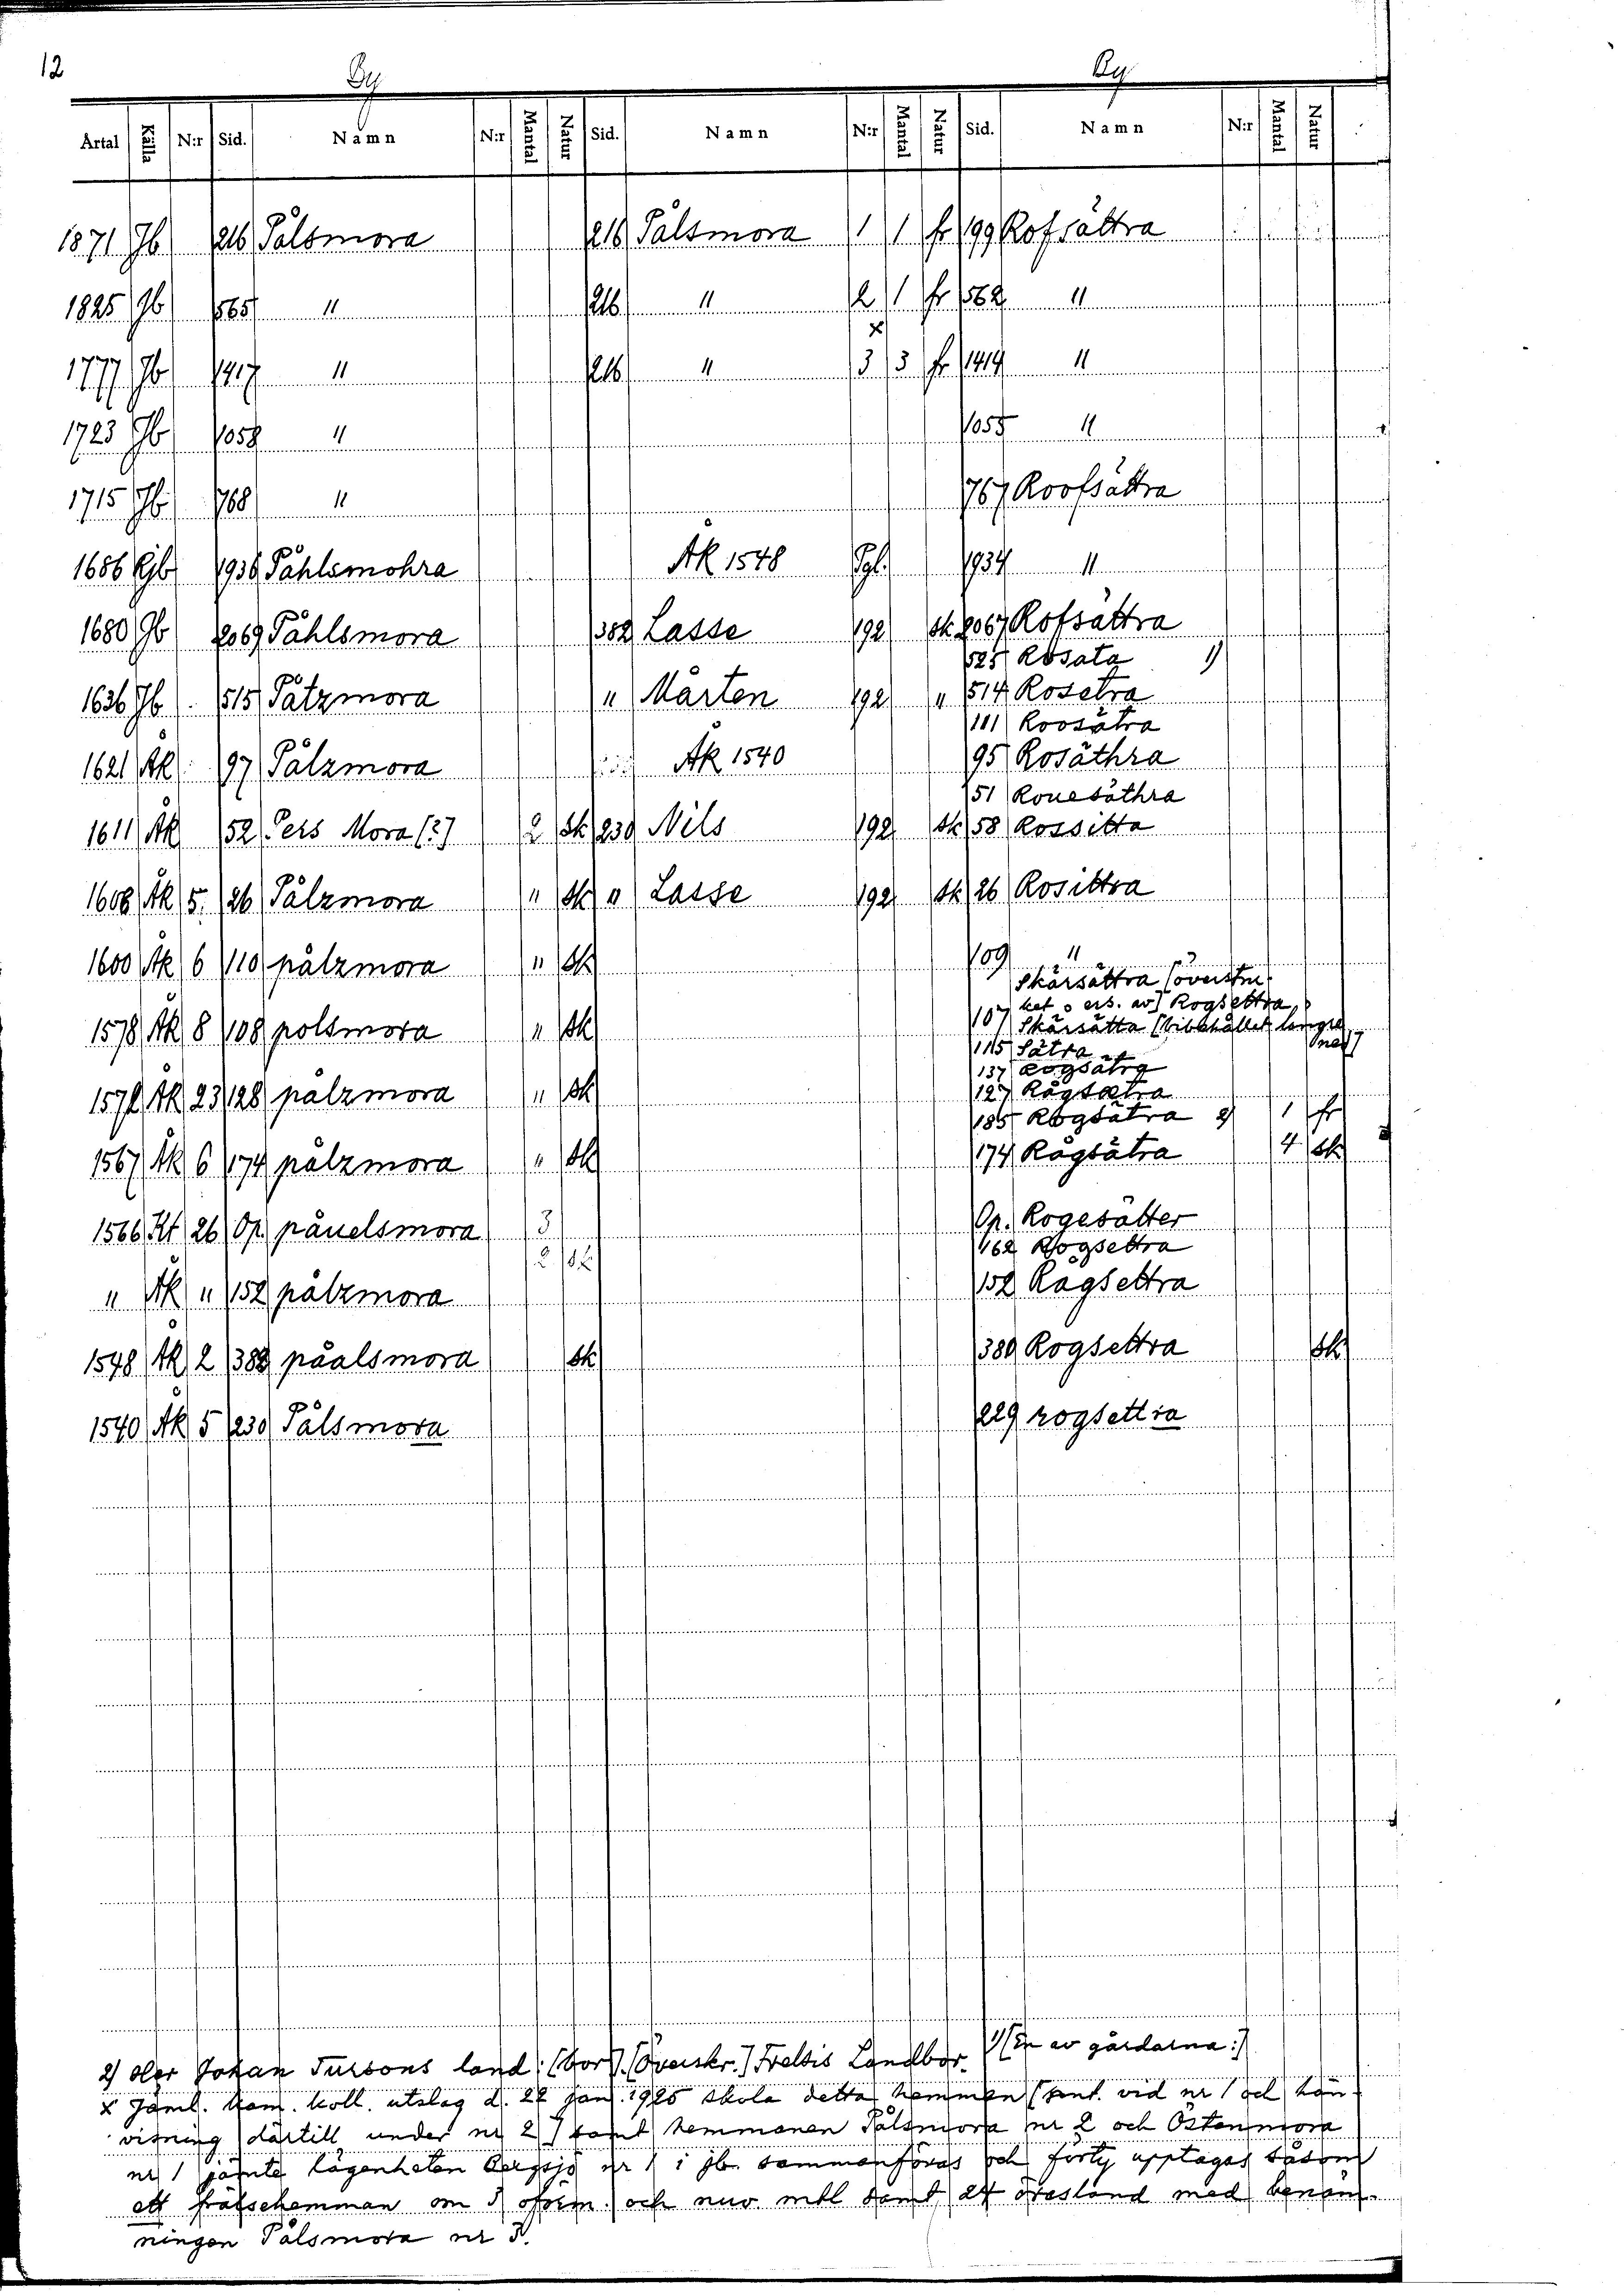 12
By By
Årtal Källa N:r Sid. Namn N:r Mantal Natur Sid. Namn N:r Mantal Natur Sid. Namn N:r Mantal Natur
1871 Jb 216 Pålsmora 216 Pålsmora 1 1 fr 199 Rofsättra
1825 Jb 565 " 216 " 2 1 fr 562 "
x
1777 Jb 1417 " 216 " 3 3 fr 1414 "
1723 Jb 1058 " 1055 "
1715 Jb 768 " 767 Roofsättra
1686 Rjb 1936 Påhlsmohra ÅK 1548 Pgl. 1934 "
1680 Jb 2069 Påhlsmora 382 Lasse 192 sk 2067 Rofsättra
525 Rosata 1)
1636 Jb 515 Påtzmora " Mårten 192 " 514 Rosetra
101 Roosätra
1621 Åk 97 Pålzmora ÅK 1540 95 Rosäthra
51 Rouesäthra
1611 Åk 52 Pers Mora (?) 2 sk 230 Nils 192 sk 58 Rossitta
1608 Åk 5 26 Pålzmora " sk " Lasse 192 sk 26 Rosittra
1600 Åk 6 110 pålzmora " sk 109 "
Skärsättra [överstru-
ket o ers. av] Rogsettra
1578 Åk 8 108 polsmora " sk 107 Skärsätta [bibehållet längre
ned]
115 Sätra
137 Rogsätra
1572 Åk 23 128 pålzmora " sk 127 Rågsætra
185 Rogsätra 2) 1 fr
1567 Åk 6 174 pålzmora " sk 174 Rågsätra 4 sk
1566 Kt 26 Op. påuelsmora 3 Op. Rogesätter
2 sk 162 Rogsettra
" Åk " 152 pålzmora 152 Ragsettra
1548 Åk 2 382 påalsmora sk 380 Rogsettra sk
1540 Åk 5 230 Pålsmora 229 rogsettra
2) Her Johan Turssons land: (bor). [Överskr.] Frelsis Landbor. 1) [En av gårdarna:]
x Jäml. kam. koll. utslag d. 22 jan. 1925 skola detta hemman (ant. vid nr 1 och hän-
visning därtill under nr 2) samt hemmanen Pålsmora nr 2 och Östanmora
nr 1 jämte lägenheten Bergsjö nr 1 i jb. sammanföras och förty upptagas såsom
ett frälsehemman om 3 oförm. och nuv. mtl samt 24 öresland med benäm-
ningen Pålsmora nr 3.